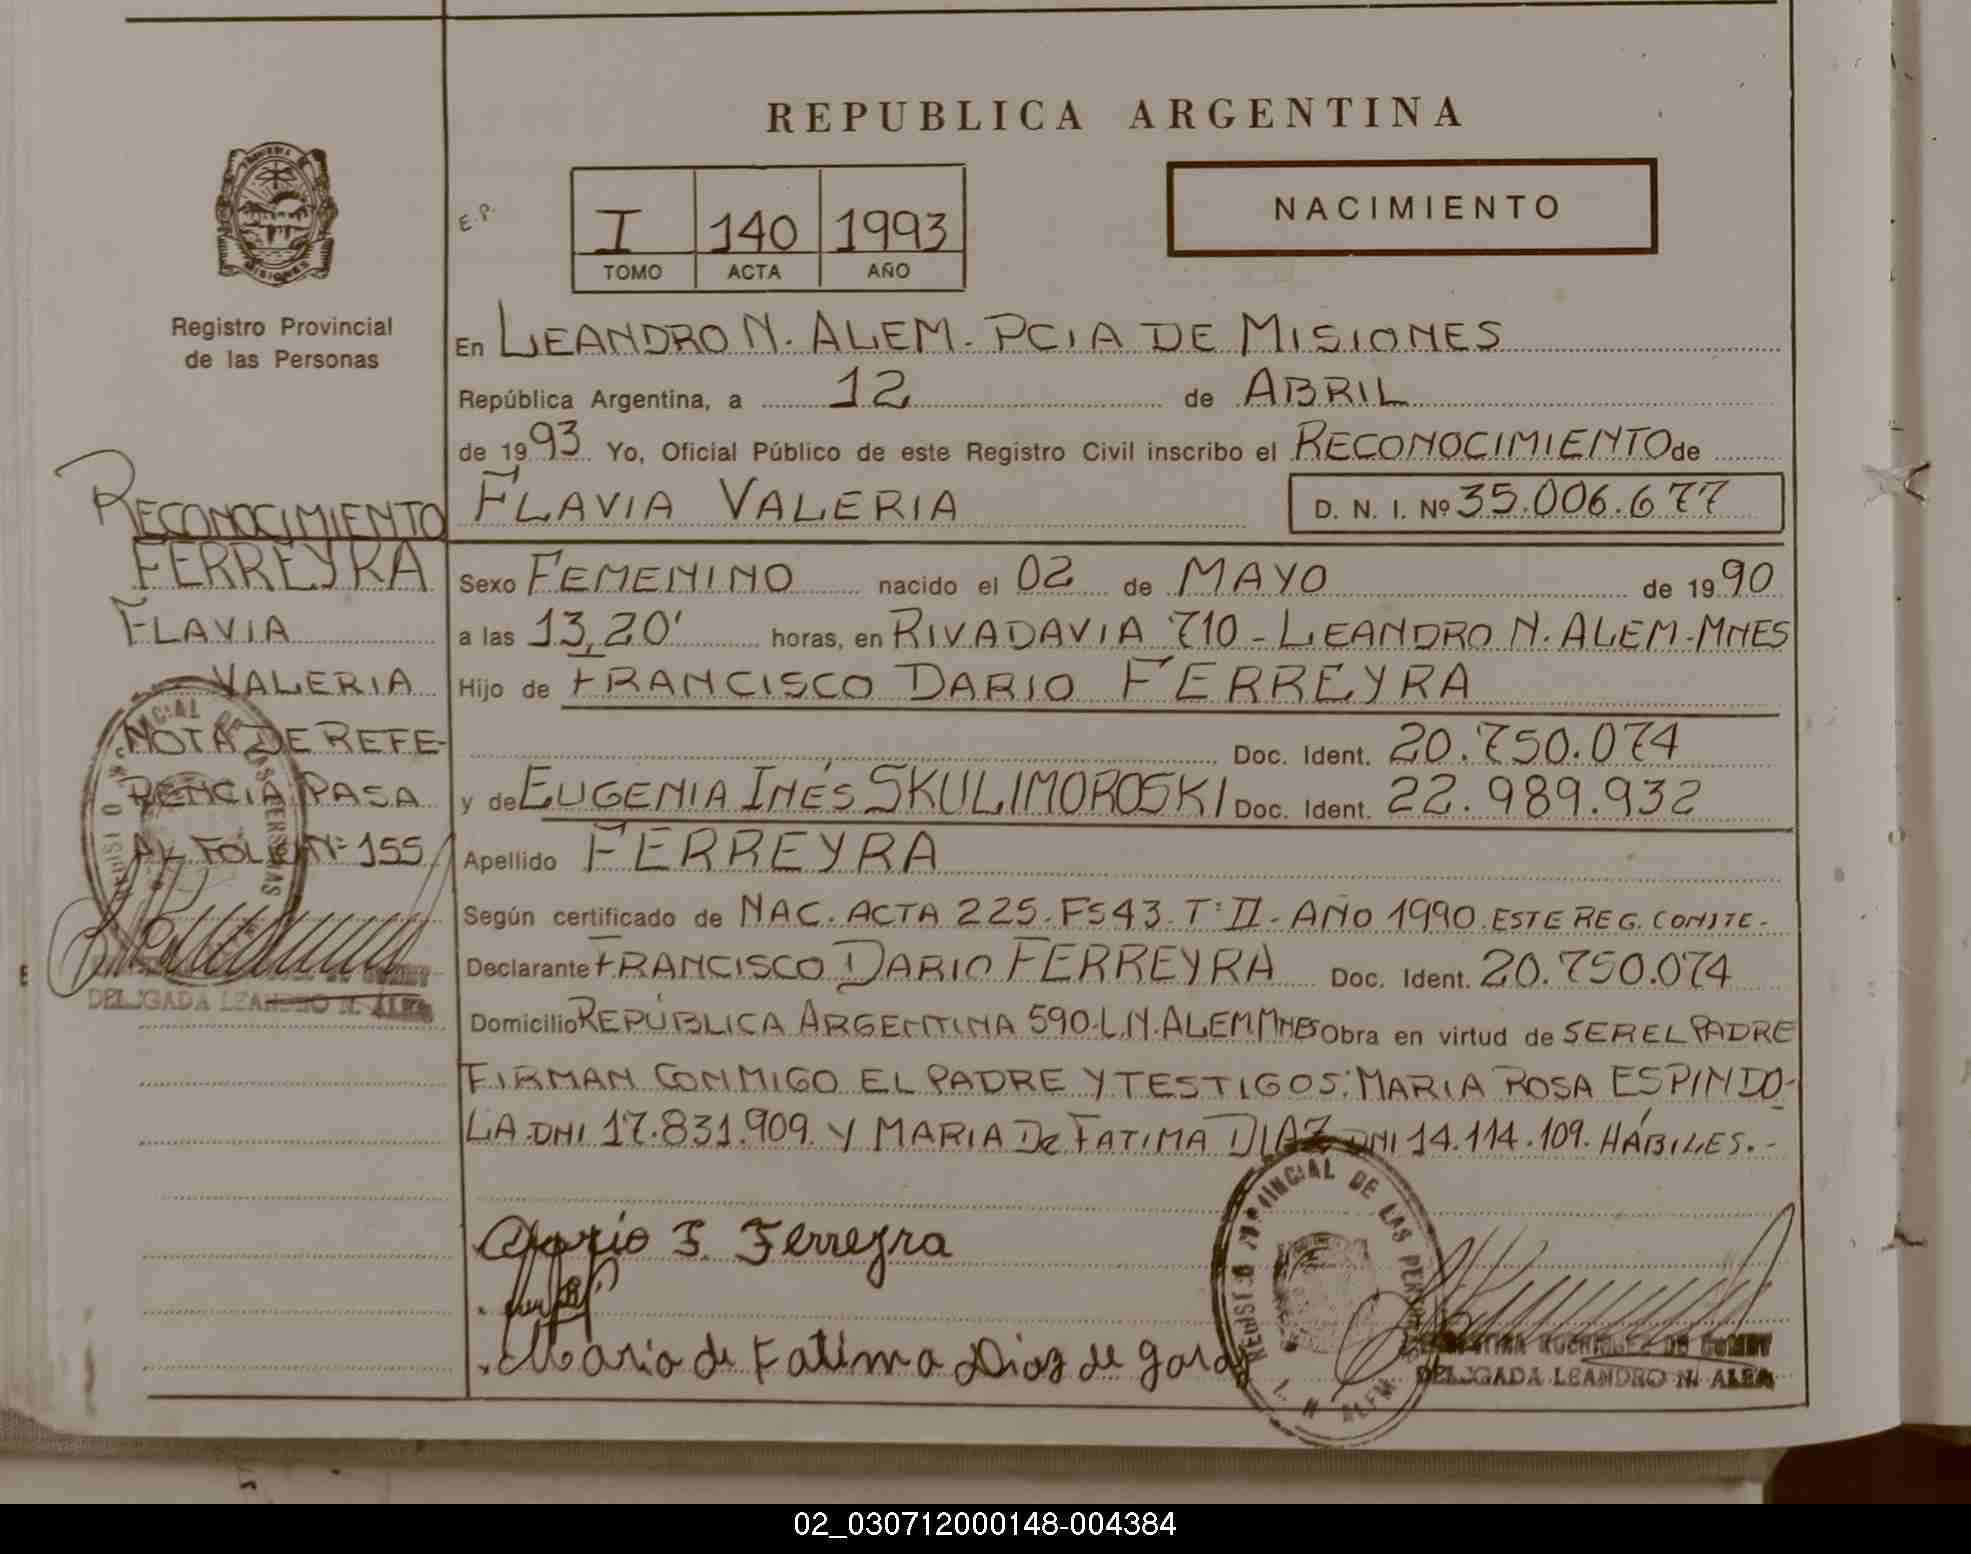 REPUBLICA ARGENTINA
E.P.
I 140 1993
TOMO ACTA AÑO
NACIMIENTO
MISIONES
Registro Provincial
de las Personas
En LEANDRO N. ALEM. PCIA DE MISIONES
República Argentina, a 12 de ABRIL
de 1993 Yo, Oficial Público de este Registro Civil inscribo el RECONOCIMIENTO de
FLAVIA VALERIA D. N. I. Nº 35.006.677
RECONOCIMIENTO
FERREYRA
FLAVIA
VALERIA
NOTA DE REFE-
RENCIA PASA
AL FOLIO Nº 155
DELEGADA LEANDRO N. ALEM
Sexo FEMENINO nacido el 02 de MAYO de 1990
a las 13,20' horas, en RIVADAVIA 710 - LEANDRO N. ALEM - MNES
Hijo de FRANCISCO DARIO FERREYRA
Doc. Ident. 20.750.074
y de EUGENIA INÉS SKULIMOROSKI Doc. Ident. 22.989.932
Apellido FERREYRA
Según certificado de NAC. ACTA 225. Fs 43. Tº II - AÑO 1990. ESTE REG. CONSTE-
Declarante FRANCISCO DARIO FERREYRA Doc. Ident. 20.750.074
Domicilio REPÚBLICA ARGENTINA 590 L.N. ALEM. MNES Obra en virtud de SER EL PADRE
FIRMAN CONMIGO EL PADRE Y TESTIGOS: MARIA ROSA ESPINDO-
LA. DNI 17.831.909. Y MARIA DE FATIMA DIAZ DNI 14.114.109. HÁBILES.-
Dario F. Ferreyra
Maria de Fatima Diaz de
REGISTRO PROVINCIAL DE LAS PERSONAS
L. N. ALEM
DELEGADA LEANDRO N. ALEM
02_030712000148-004384